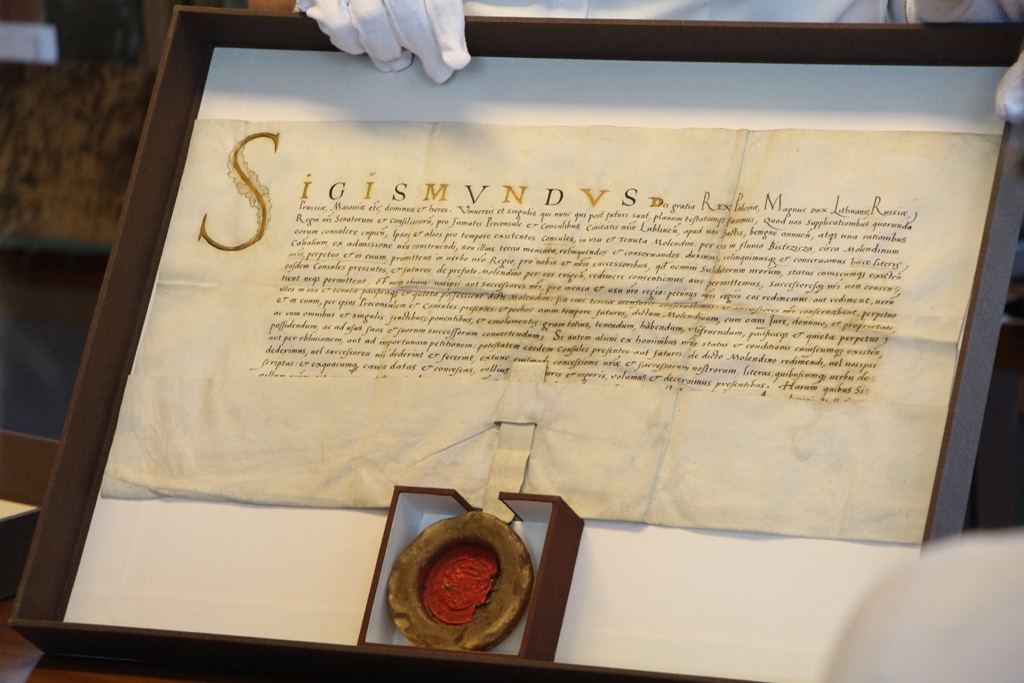 SIGISMVNDVS Dei gratia Rex Poloniæ, Magnus Dux Lithuaniæ, Russiæ,
Prussiæ, Masoviæ etc, dominus et heres. Universis et singulis qui nunc qui post futuri sunt, planum testatumq; facimus, Quod nos supplicationibus quorunda
Regni nri Senatorum et Consiliariorũ, pro famatis Proconsule et Consulibus Civitatis nræ Lublineñ, apud nos factis, benigne annuen, atq; una rationibus
eorum consulere cupień, Ipsos et alios pro tempore existentes Consules, in usu et tenuta Molendini per eos in fluvio Bistrzicza, circa Molendinum
ex admissione nra construendi, seu illius tercia mensura, relinquendos et conservandos duximus, relinquimusq; et conservamus hisce literis
nris, perpetuo et in evum, promittentes in verbo nro Regio, pro nobis et nris successoribus, qd nemini Subditorum nrorum, status cuiuscunq; existen
eosdem Consules presentes, et futuros de prefato Molendino per eos erigeñ, redimere consentiemus aut permittemus, successoresq; nri non consen-
tient neq; permittent, Et non etiam nosipsi aut successores nri, pro mensa et usu nro regio: pecunijs nris regijs eos redimemus: aut rediment, verũ
illos in usu et tenuta pacificaq; et quieta possessione dicti Molendini, seu eius terciæ mensuræ conservabimus et successores nri conservabunt, perpetuo
et in evum, per ipsos Proconsulem et Consules presentes, et posthac omni tempore futuros, dictum Molendinum, cum omni Iure, dominio, et proprietate
ac cum omnibus et singulis fructibus, proventibus, et emolumentis, tenendum, habendum, utifruendum, pacificeq; et quiete perpetuo
possidendum, ac ad usus suos et suorum successorum convertendum, Si autem alicui ex hominibus nris status et conditionis cuiuscunq; existen,
aut per oblivionem, aut ad importunam petitionem: potestatem eosdem Consules presentes aut futuros: de dicto Molendino redimendi, vel nosipsi
dederimus, vel successores nri dederint et fecerint, extunc concessionis nræ et successorum nostrorum literas, quibuscunq; verbis de-
scriptas: et ex quacunq; causa datas et concessas, nullius et vigoris, volumus et decernimus presentibus. Harum quibus Si-